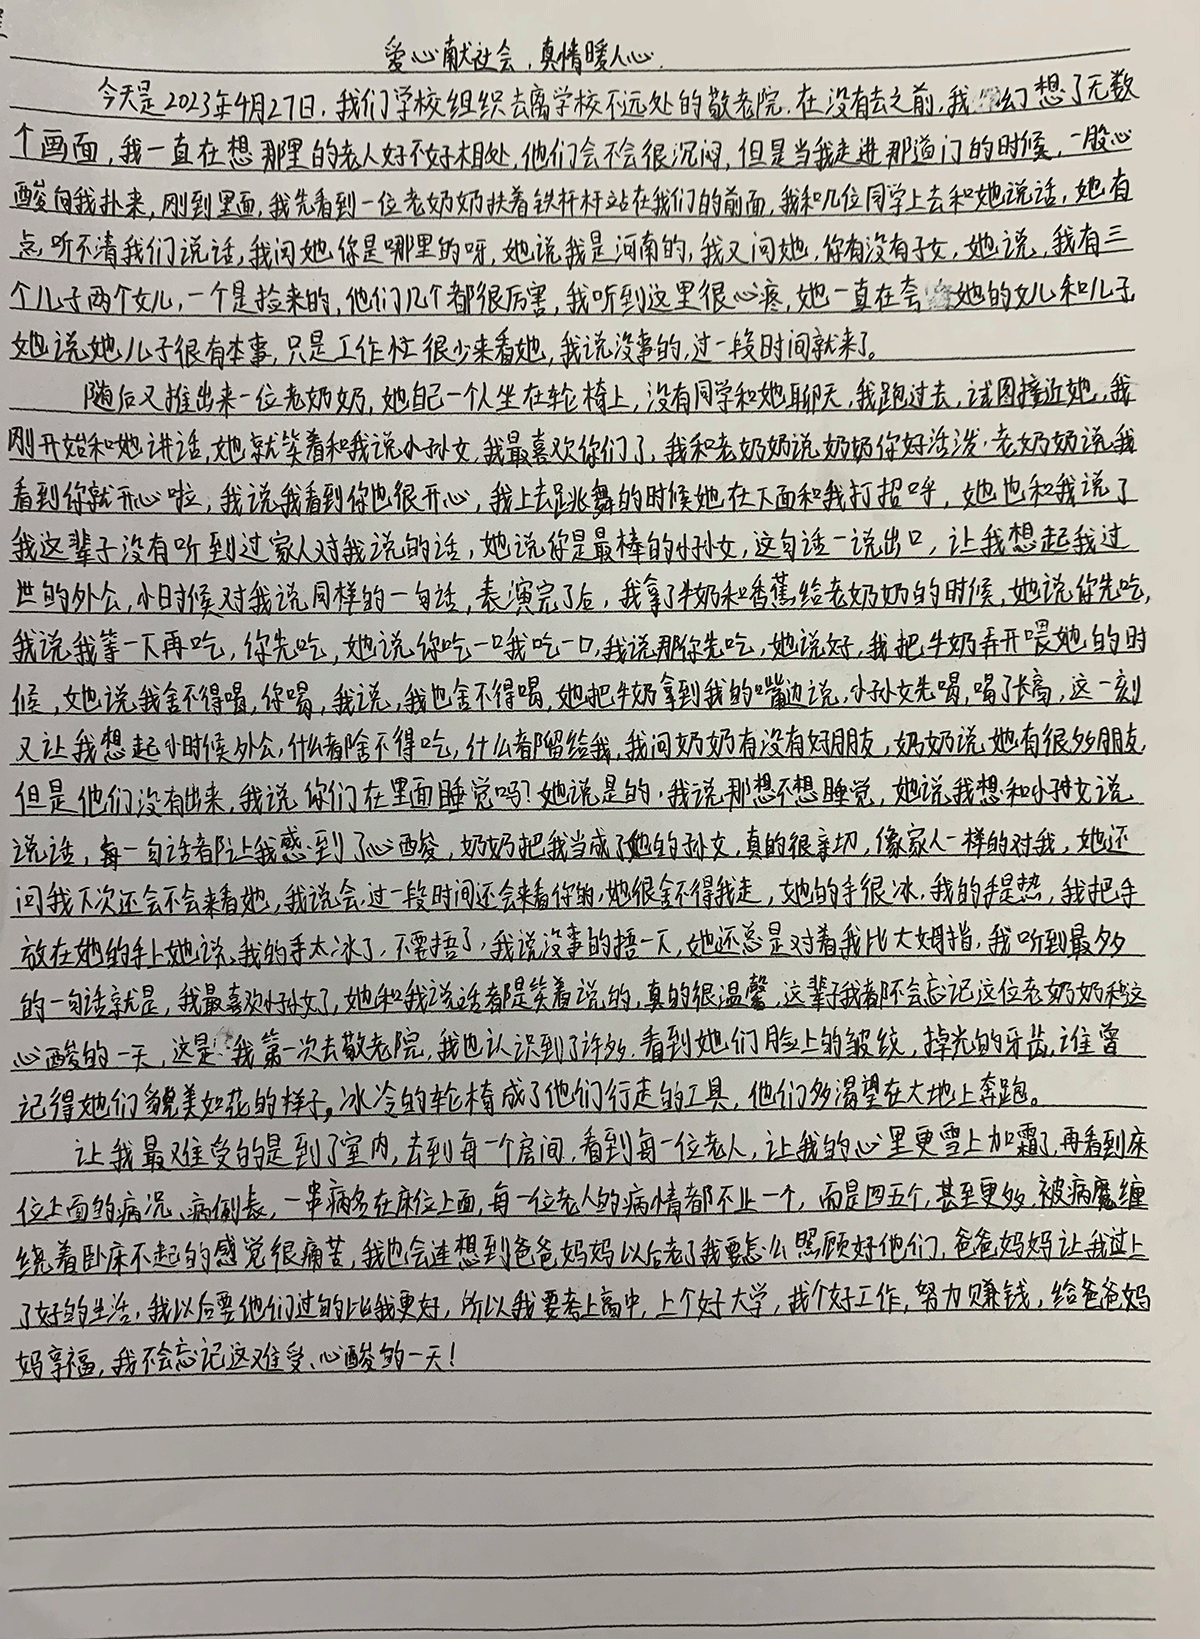 爱心献社会，真情暖人心.
今天是2023年4月27日，我们学校组织去离学校不远处的敬老院，在没有去之前，我幻想了无数
个画面，我一直在想那里的老人好不好相处，他们会不会很沉闷，但是当我走进那道门的时候，一股心
酸向我扑来，刚到里面，我先看到一位老奶奶扶着铁杆杆站在我们的前面，我和几位同学上去和她说话，她有
点听不清我们说话，我问她你是哪里的呀，她说我是河南的，我又问她，你有没有子女，她说，我有三
个儿子两个女儿，一个是捡来的，他们几个都很厉害，我听到这里很心疼，她一直在夸她的女儿和儿子
她说她儿子很有本事，只是工作忙很少来看她，我说没事的，过一段时间就来了。
随后又推出来一位老奶奶，她自己一个人坐在轮椅上，没有同学和她聊天，我跑过去，试图接近她，我
刚开始和她讲话，她就笑着和我说小孙女，我最喜欢你们了，我和老奶奶说奶奶你好活泼，老奶奶说我
看到你就开心啦，我说我看到你也很开心，我上去跳舞的时候她在下面和我打招呼，她也和我说了
我这辈子没有听到过家人对我说的话，她说你是最棒的小孙女，这句话一说出口，让我想起我过
世的外公，小时候对我说同样的一句话，表演完了后，我拿了牛奶和香蕉给老奶奶的时候，她说你先吃，
我说我等一下再吃，你先吃，她说你吃一口我吃一口，我说那你先吃，她说好，我把牛奶弄开喂她的时
候，她说我舍不得喝，你喝，我说，我也舍不得喝，她把牛奶拿到我的嘴边说，小孙女先喝，喝了长高，这一刻
又让我想起小时候外公，什么都舍不得吃，什么都留给我，我问奶奶有没有好朋友，奶奶说她有很多朋友，
但是他们没有出来，我说你们在里面睡觉吗？她说是的，我说那想不想睡觉，她说我想和小孙女说
说话，每一句话都让我感到了心酸，奶奶把我当成了她的孙女，真的很亲切，像家人一样的对我，她还
问我下次还会不会来看她，我说会，过一段时间还会来看你的，她很舍不得我走，她的手很冰，我的手是热，我把手
放在她的手上她说，我的手太冰了，不要捂了，我说没事的捂一下，她还总是对着我比大姆指，我听到最多
的一句话就是，我最喜欢小孙女了，她和我说话都是笑着说的，真的很温馨，这辈子我都不会忘记这位老奶奶和这
心酸的一天，这是我第一次去敬老院，我也认识到了许多，看到她们脸上的皱纹，掉光的牙齿，谁曾
记得她们貌美如花的样子，冰冷的轮椅成了他们行走的工具，他们多渴望在大地上奔跑。
让我最难受的是到了室内，去到每一个房间，看到每一位老人，让我的心里更雪上加霜了，再看到床
位上面的病况、病例表，一串病名在床位上面，每一位老人的病情都不止一个，而是四五个，甚至更多，被病魔缠
绕着卧床不起的感觉很痛苦，我也会连想到爸爸妈妈以后老了我要怎么照顾好他们，爸爸妈妈让我过上
了好的生活，我以后要他们过的比我更好，所以我要考上高中，上个好大学，找个好工作，努力赚钱，给爸爸妈
妈享福，我不会忘记这难受、心酸的一天！